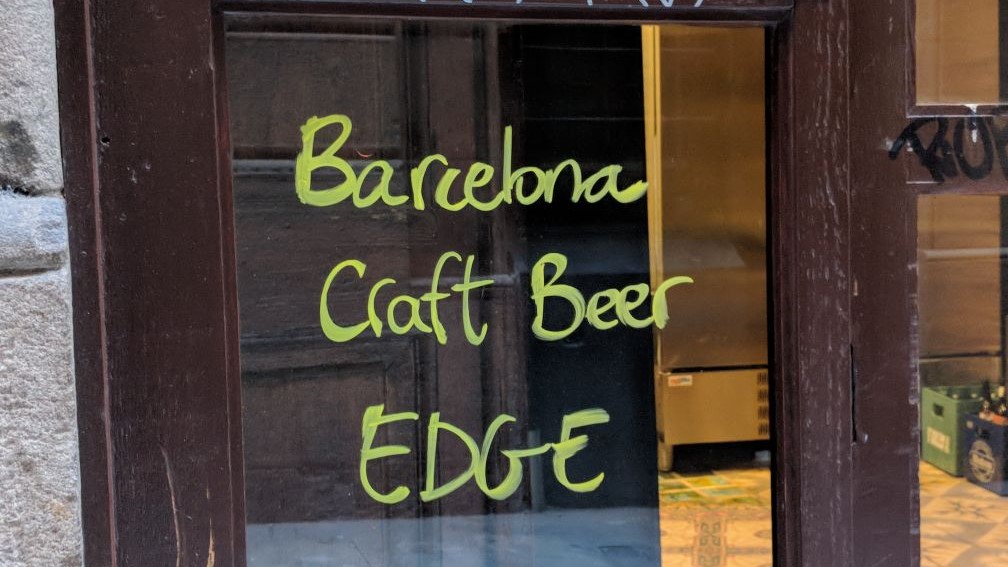 Barcelona
Craft Beer
EDGE